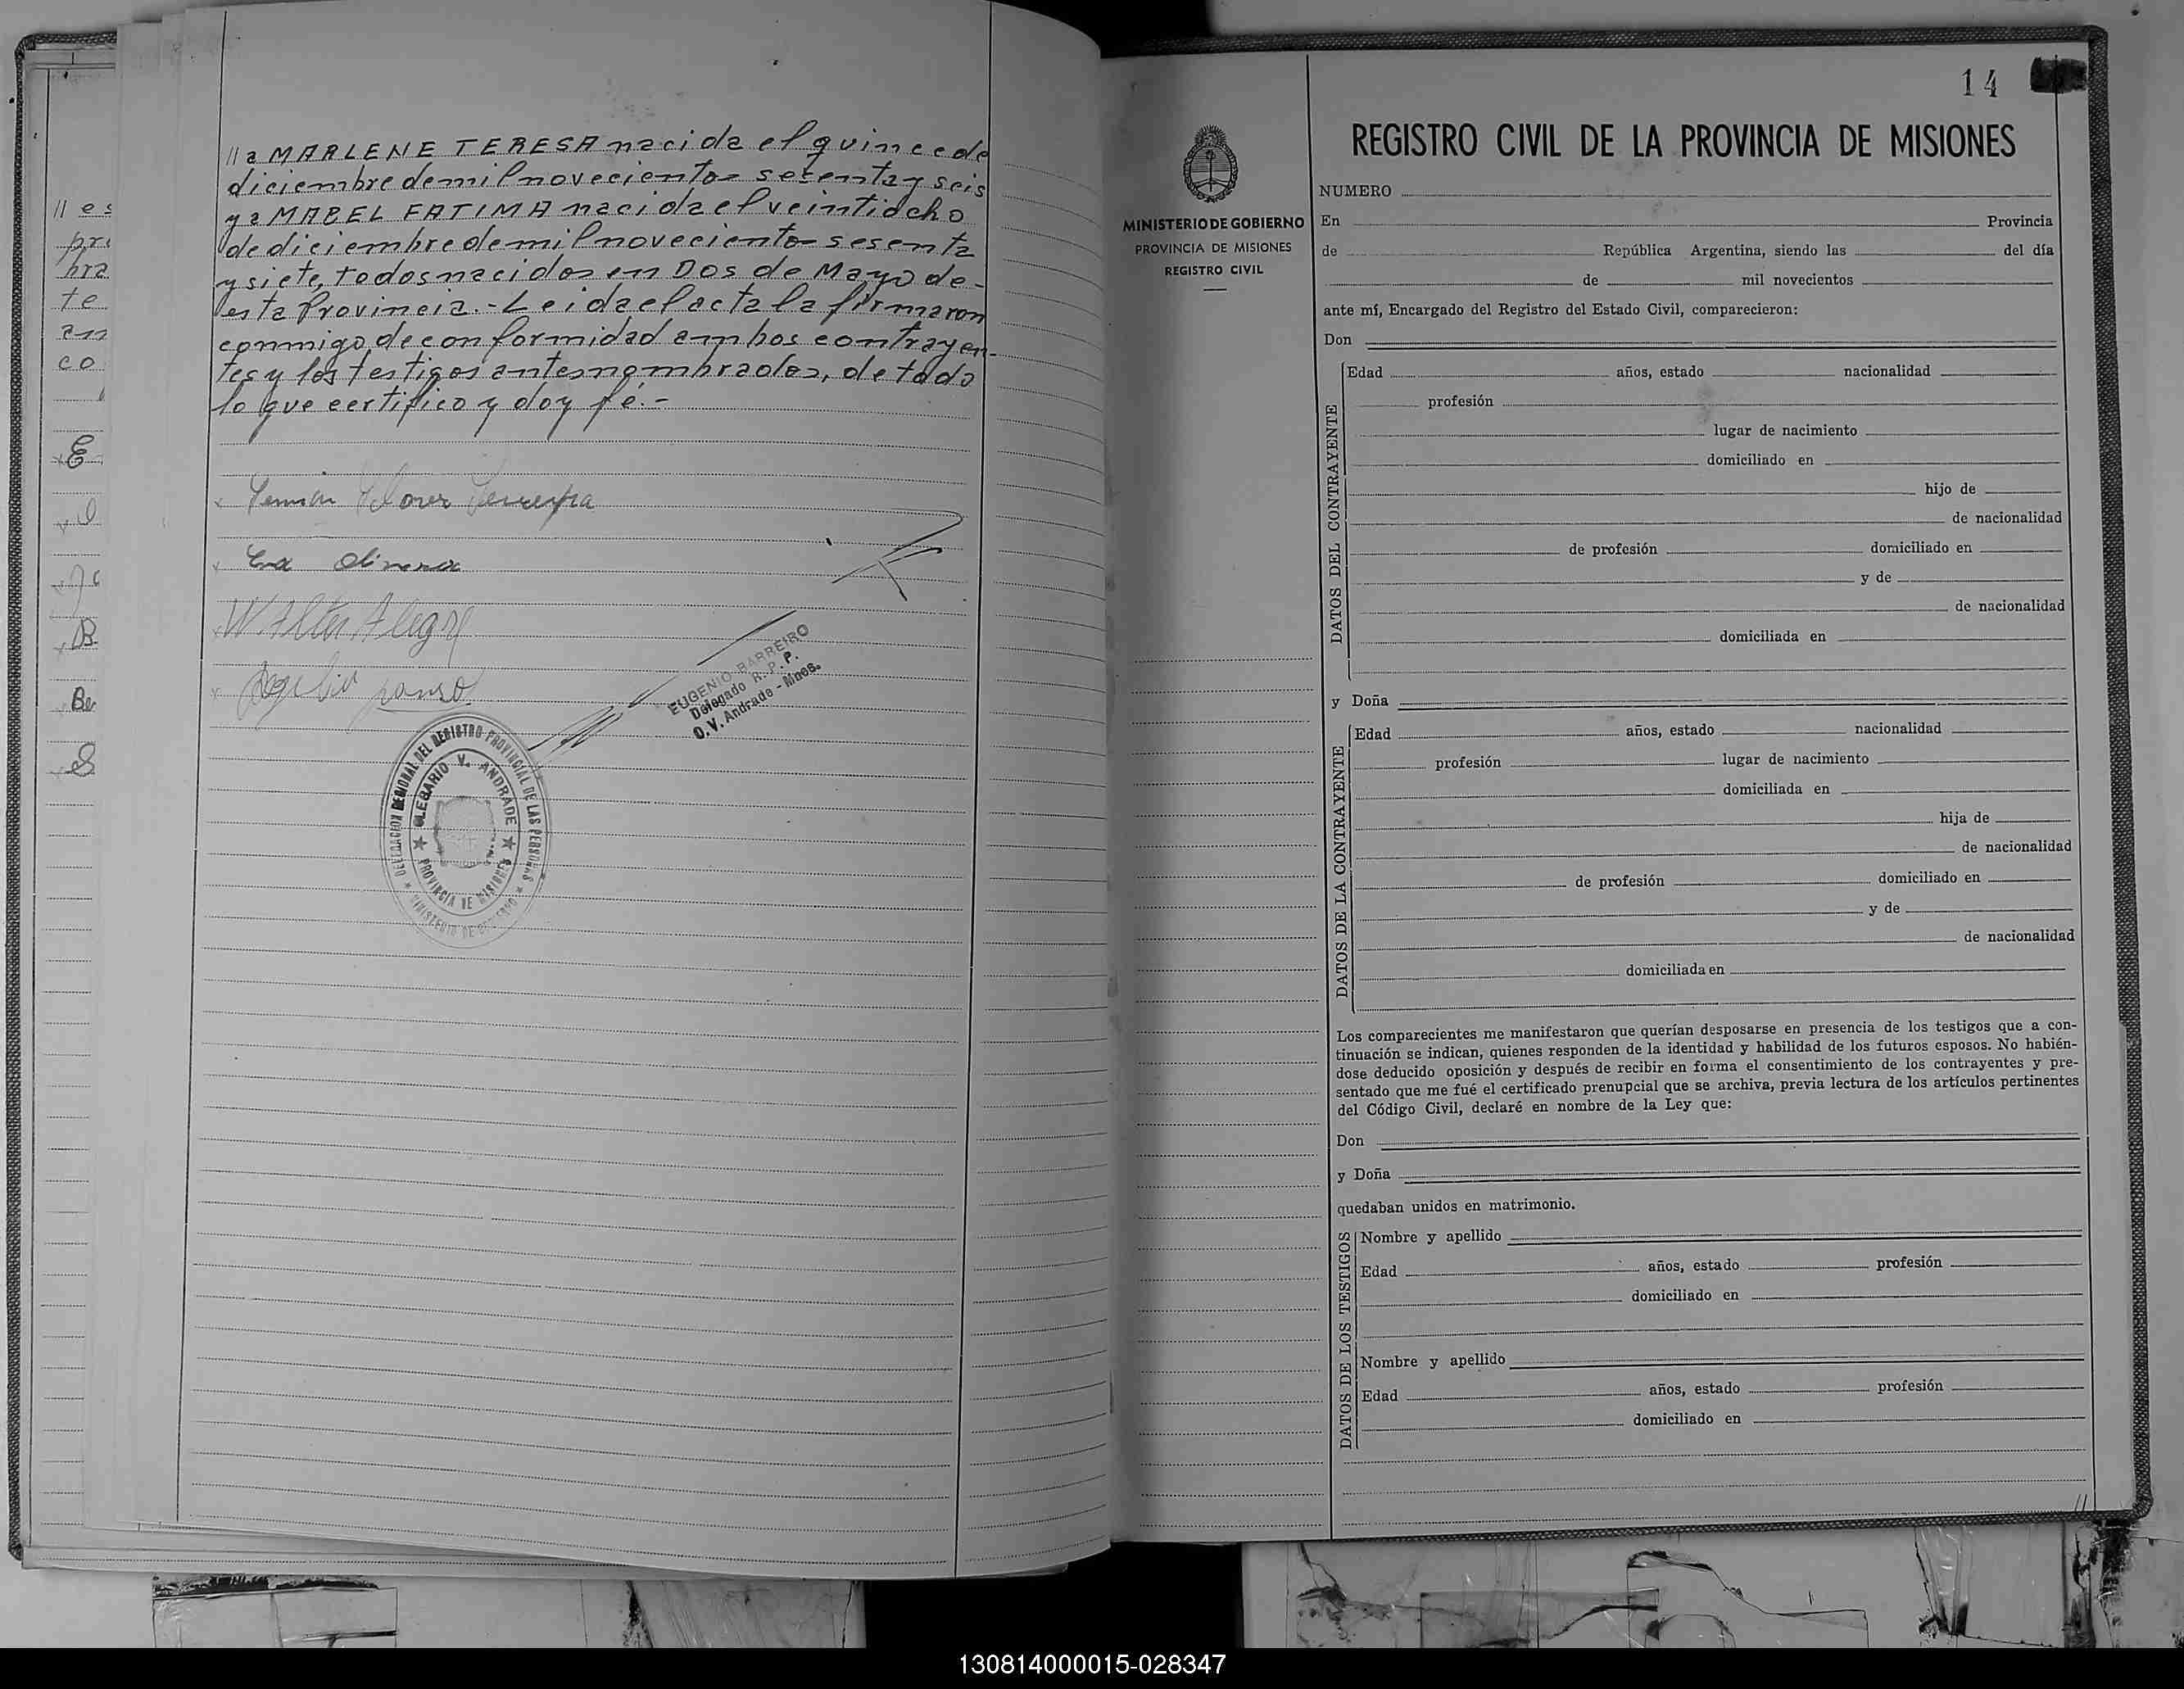 // a MARLENE TERESA nacida el quince de
diciembre de mil novecientos sesenta y seis
y a MABEL FATIMA nacida el veintiocho
de diciembre de mil novecientos sesenta
y siete, todos nacidos en Dos de Mayo de-
esta Provincia.- Leida el acta la firmaron
conmigo, de conformidad ambos contrayen-
tes y los testigos antes nombrados, de todo
lo que certifico y doy fé.-
// es
pr
bra
te
an
co
Flores Ferreyra
Eva Olivera
Walter Alegre
EUGENIO BARREIRO
Delegado R.P.P.
O.V. Andrade - Mnes.
DELEGACION REGIONAL DEL REGISTRO PROVINCIAL DE LAS PERSONAS
OLEGARIO V. ANDRADE
PROVINCIA DE MISIONES
MINISTERIO DE GOBIERNO
14
MINISTERIO DE GOBIERNO
PROVINCIA DE MISIONES
REGISTRO CIVIL
REGISTRO CIVIL DE LA PROVINCIA DE MISIONES
NUMERO
En Provincia
de República Argentina, siendo las del día
de mil novecientos
ante mí, Encargado del Registro del Estado Civil, comparecieron:
Don
DATOS DEL CONTRAYENTE
Edad años, estado nacionalidad
profesión
lugar de nacimiento
domiciliado en
hijo de
de nacionalidad
de profesión domiciliado en
y de
de nacionalidad
domiciliada en
y Doña
DATOS DE LA CONTRAYENTE
Edad años, estado nacionalidad
profesión lugar de nacimiento
domiciliada en
hija de
de nacionalidad
de profesión domiciliado en
y de
de nacionalidad
domiciliada en
Los comparecientes me manifestaron que querían desposarse en presencia de los testigos que a con-
tinuación se indican, quienes responden de la identidad y habilidad de los futuros esposos. No habién-
dose deducido oposición y después de recibir en forma el consentimiento de los contrayentes y pre-
sentado que me fué el certificado prenupcial que se archiva, previa lectura de los artículos pertinentes
del Código Civil, declaré en nombre de la Ley que:
Don
y Doña
quedaban unidos en matrimonio.
DATOS DE LOS TESTIGOS
Nombre y apellido
Edad años, estado profesión
domiciliado en
Nombre y apellido
Edad años, estado profesión
domiciliado en
//
130814000015-028347